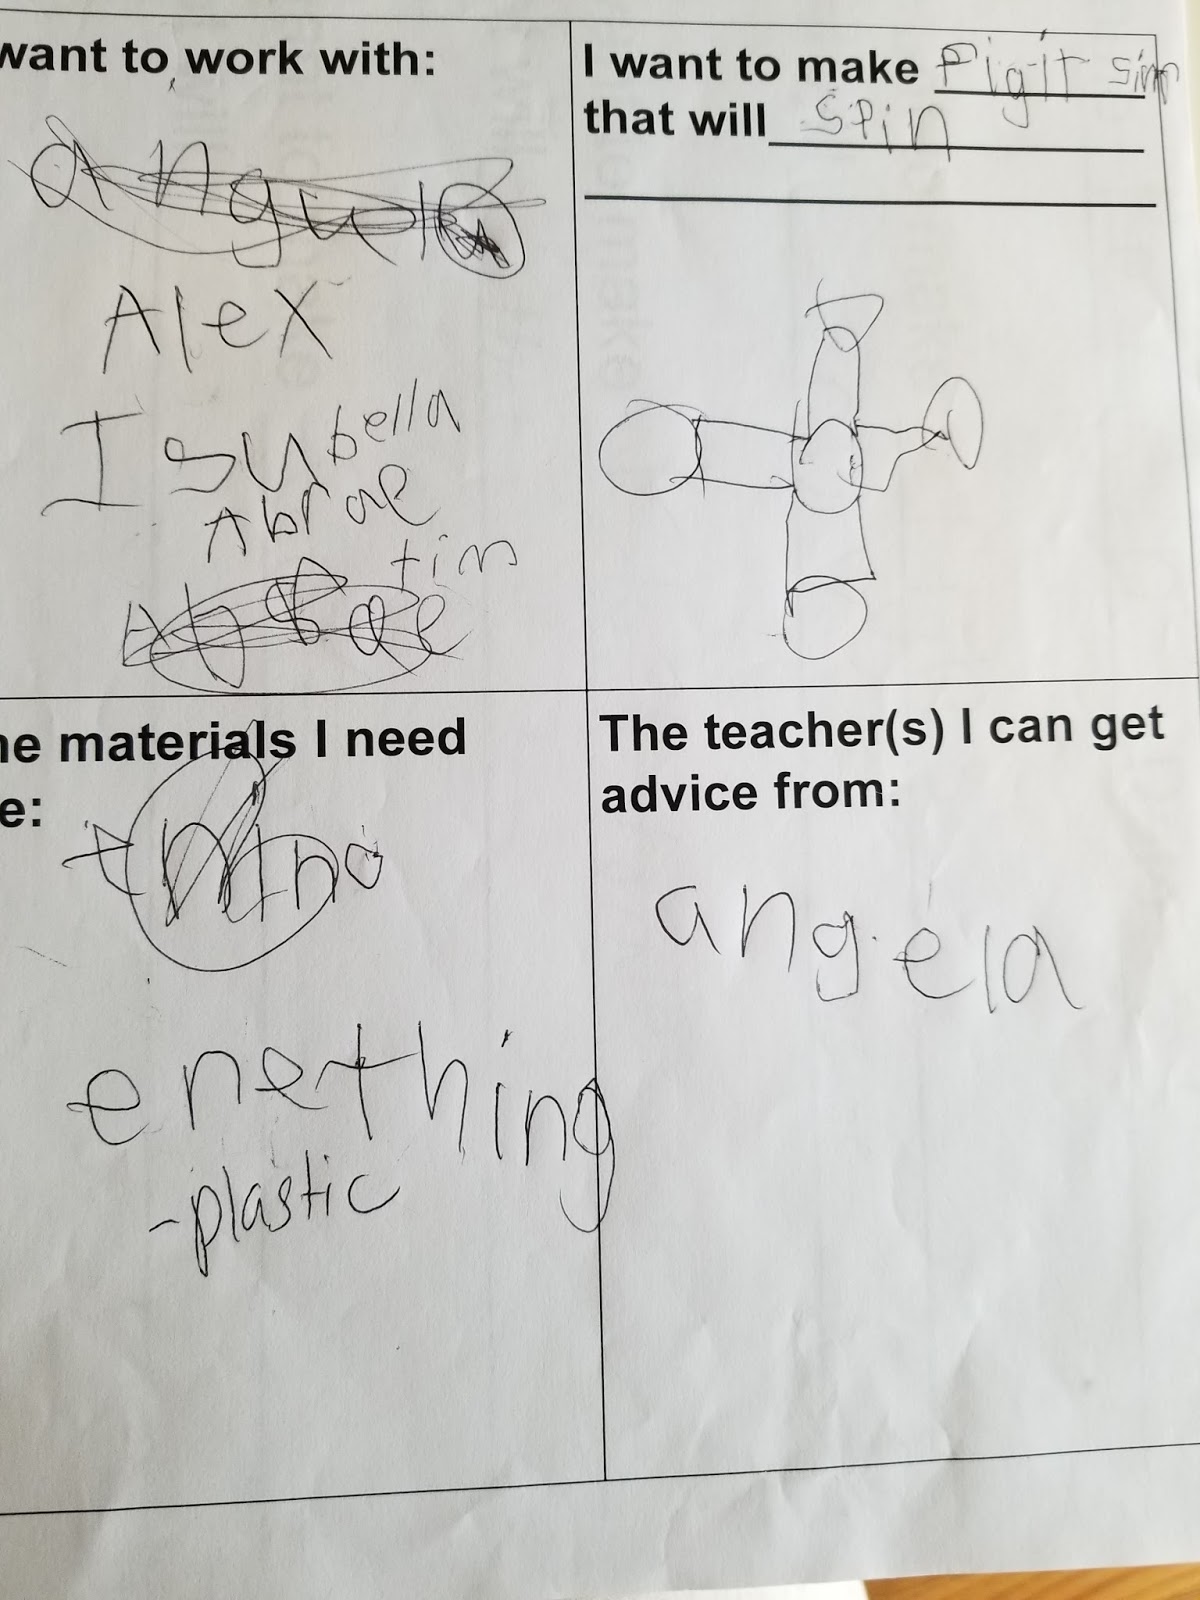 want to work with:
Alex
Isubella
Abrae
tim
I want to make Pigit
that will spin
he materials I need
e:
enething
-plastic
The teacher(s) I can get
advice from:
angela